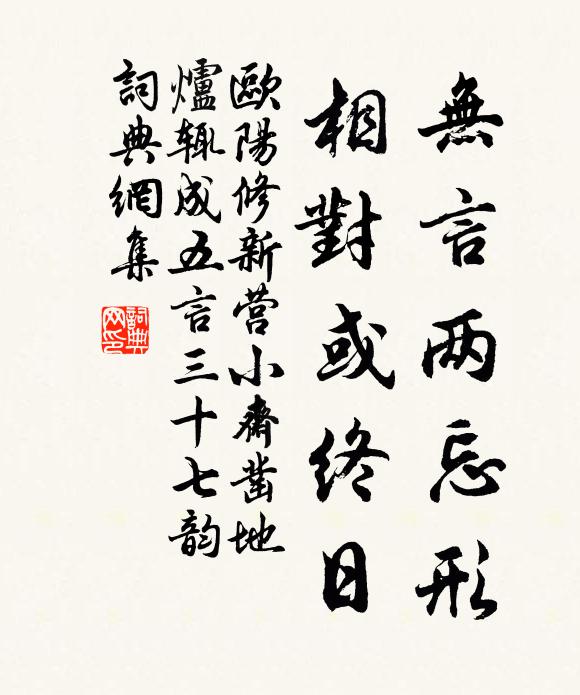 無言两忘形
相對或終日
歐陽修新营小齋凿地
爐辄成五言三十七韵
詞典網集
詞典网印